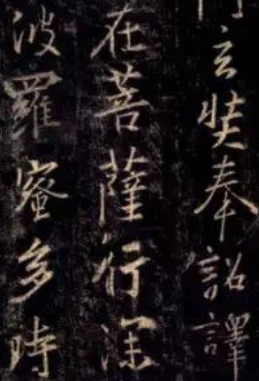 玄奘奉詔譯
在菩薩行深
波羅蜜多時